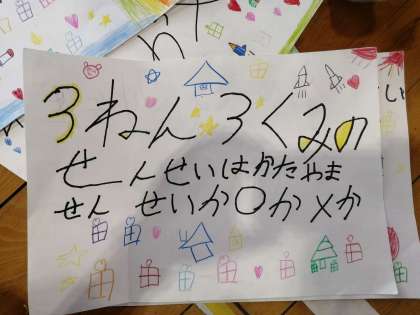 3ねん3くみの
せんせいはかたやま
せん せいか〇か×か